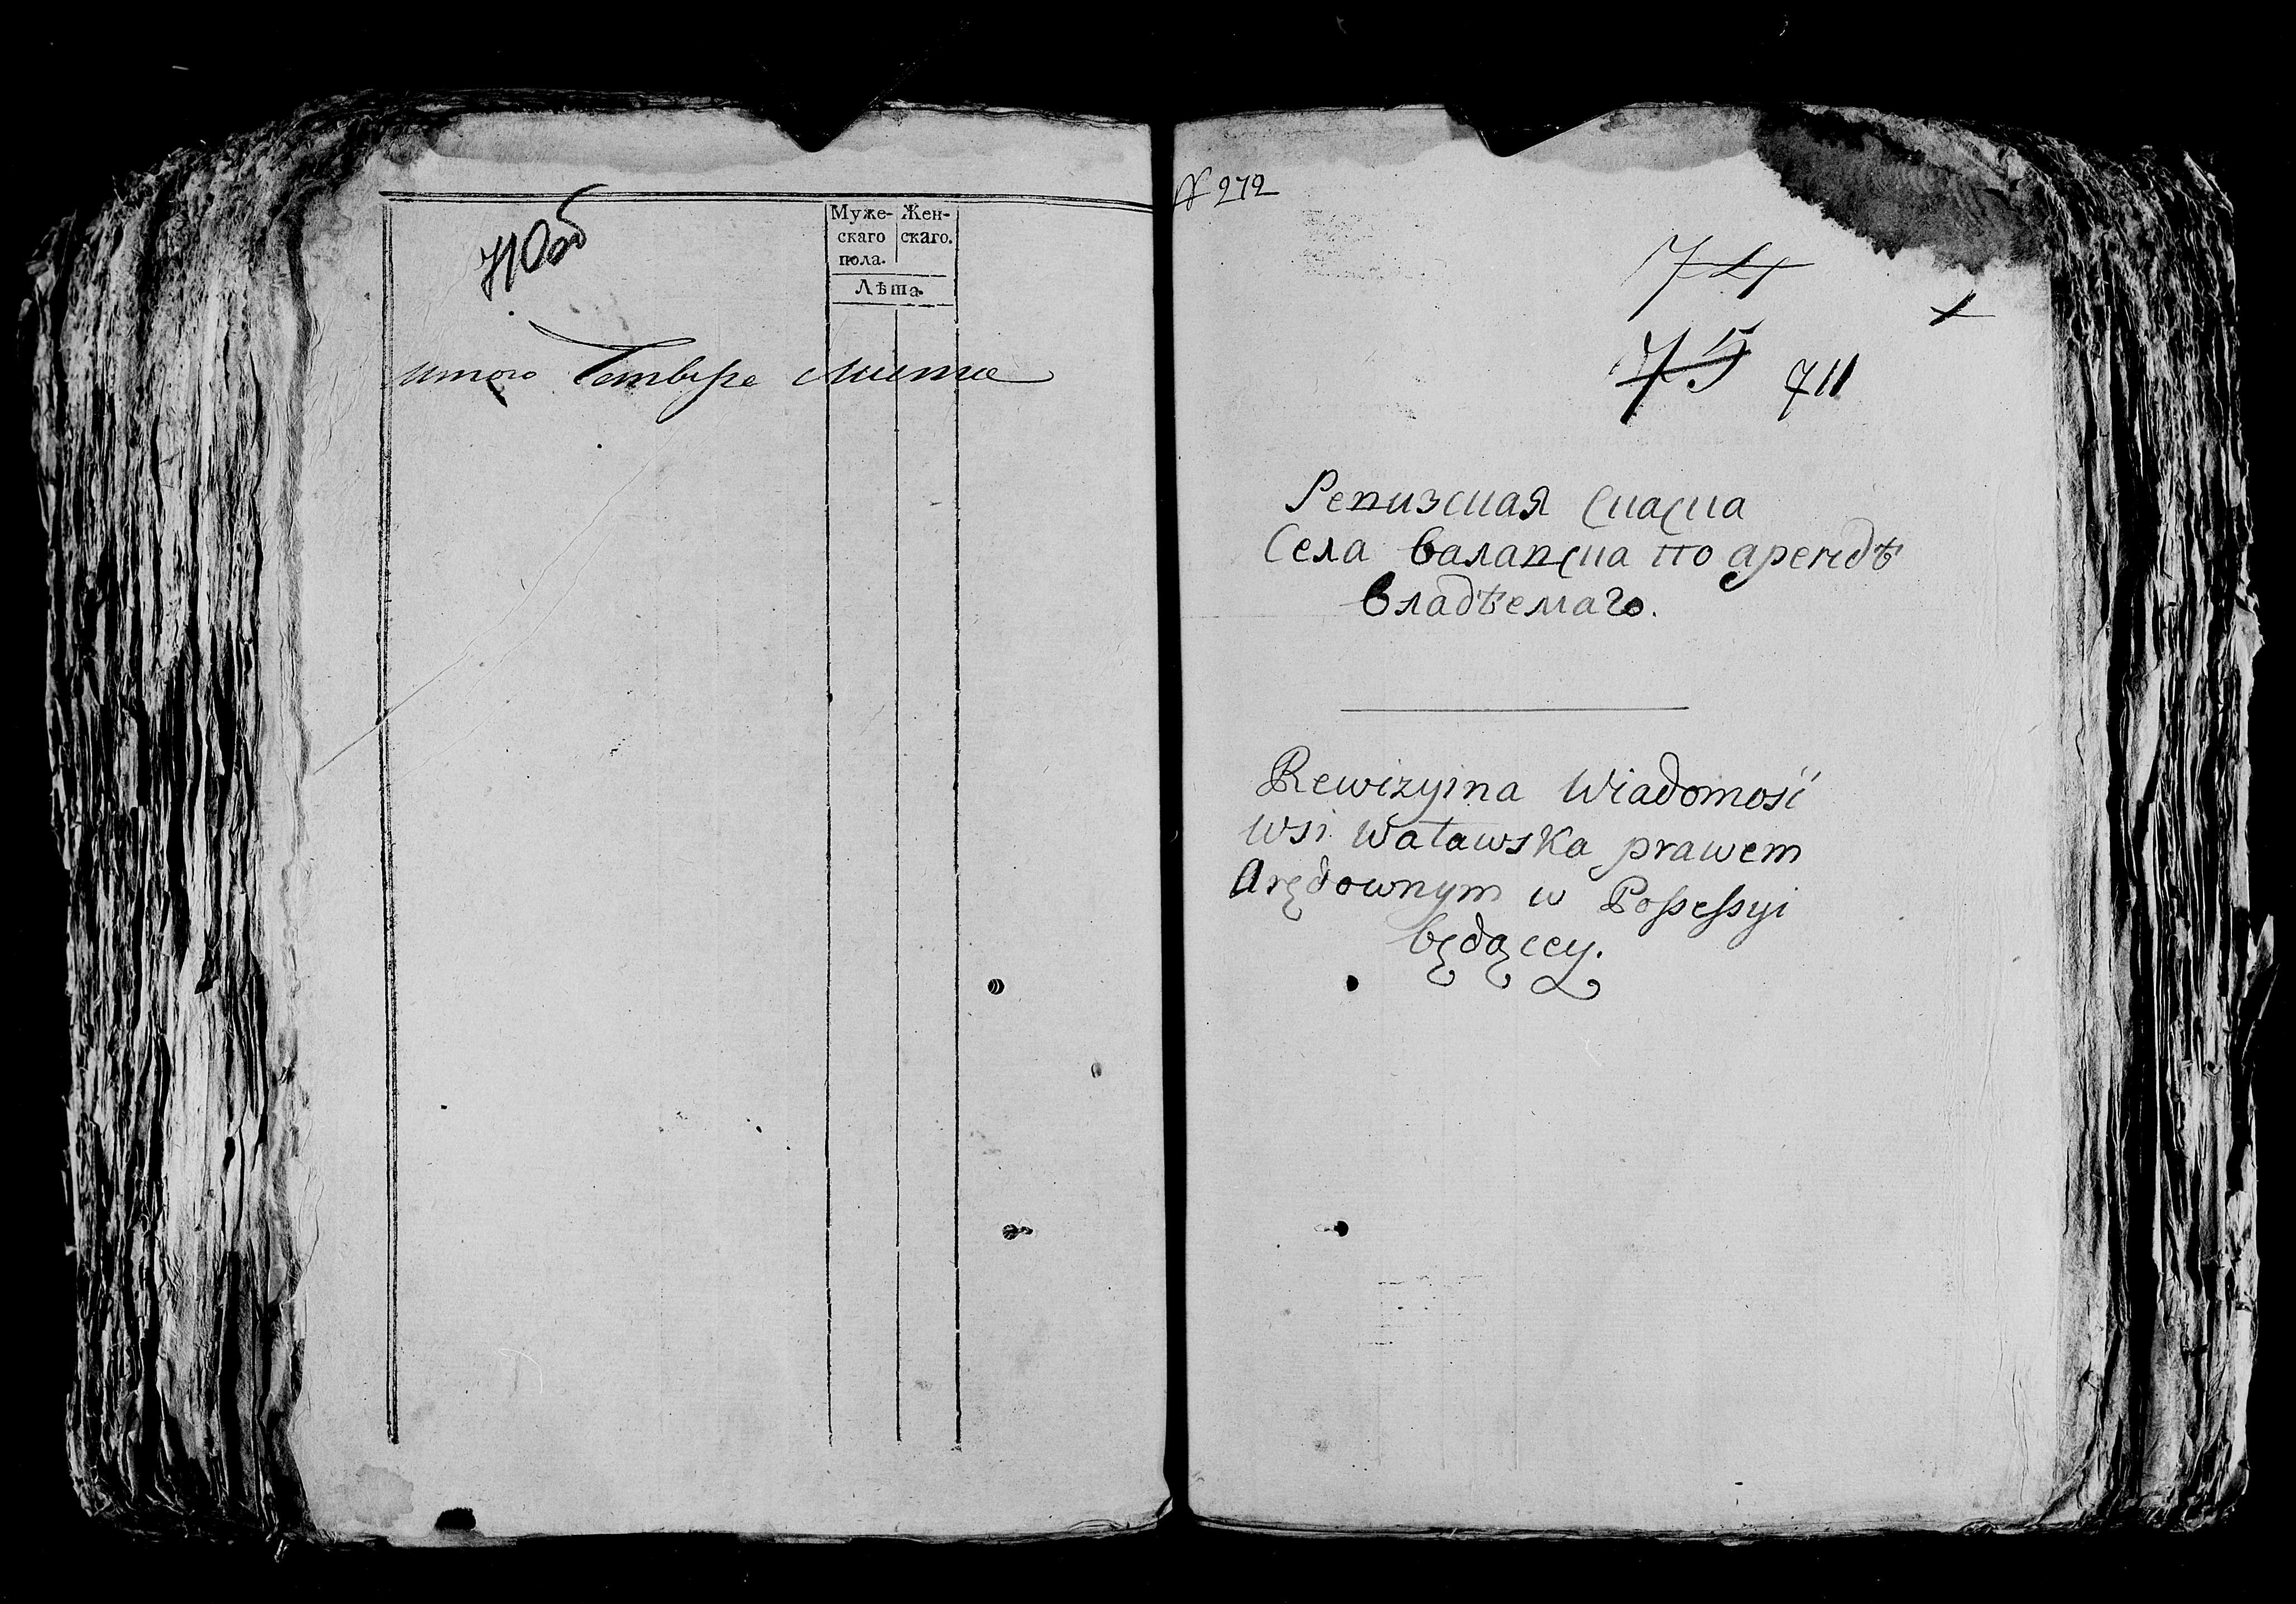 710об
Муже-
скаго
пола.
Жен-
скаго.
Лѣта.
итого Четыре листа
№ 272
74
75 711
Ревизская Скаска
Села Валавска по арендѣ
владѣемаго.
Rewizyina Wiadomość
wsi Waławska prawem
Arędownym w Possessyi
będącey.